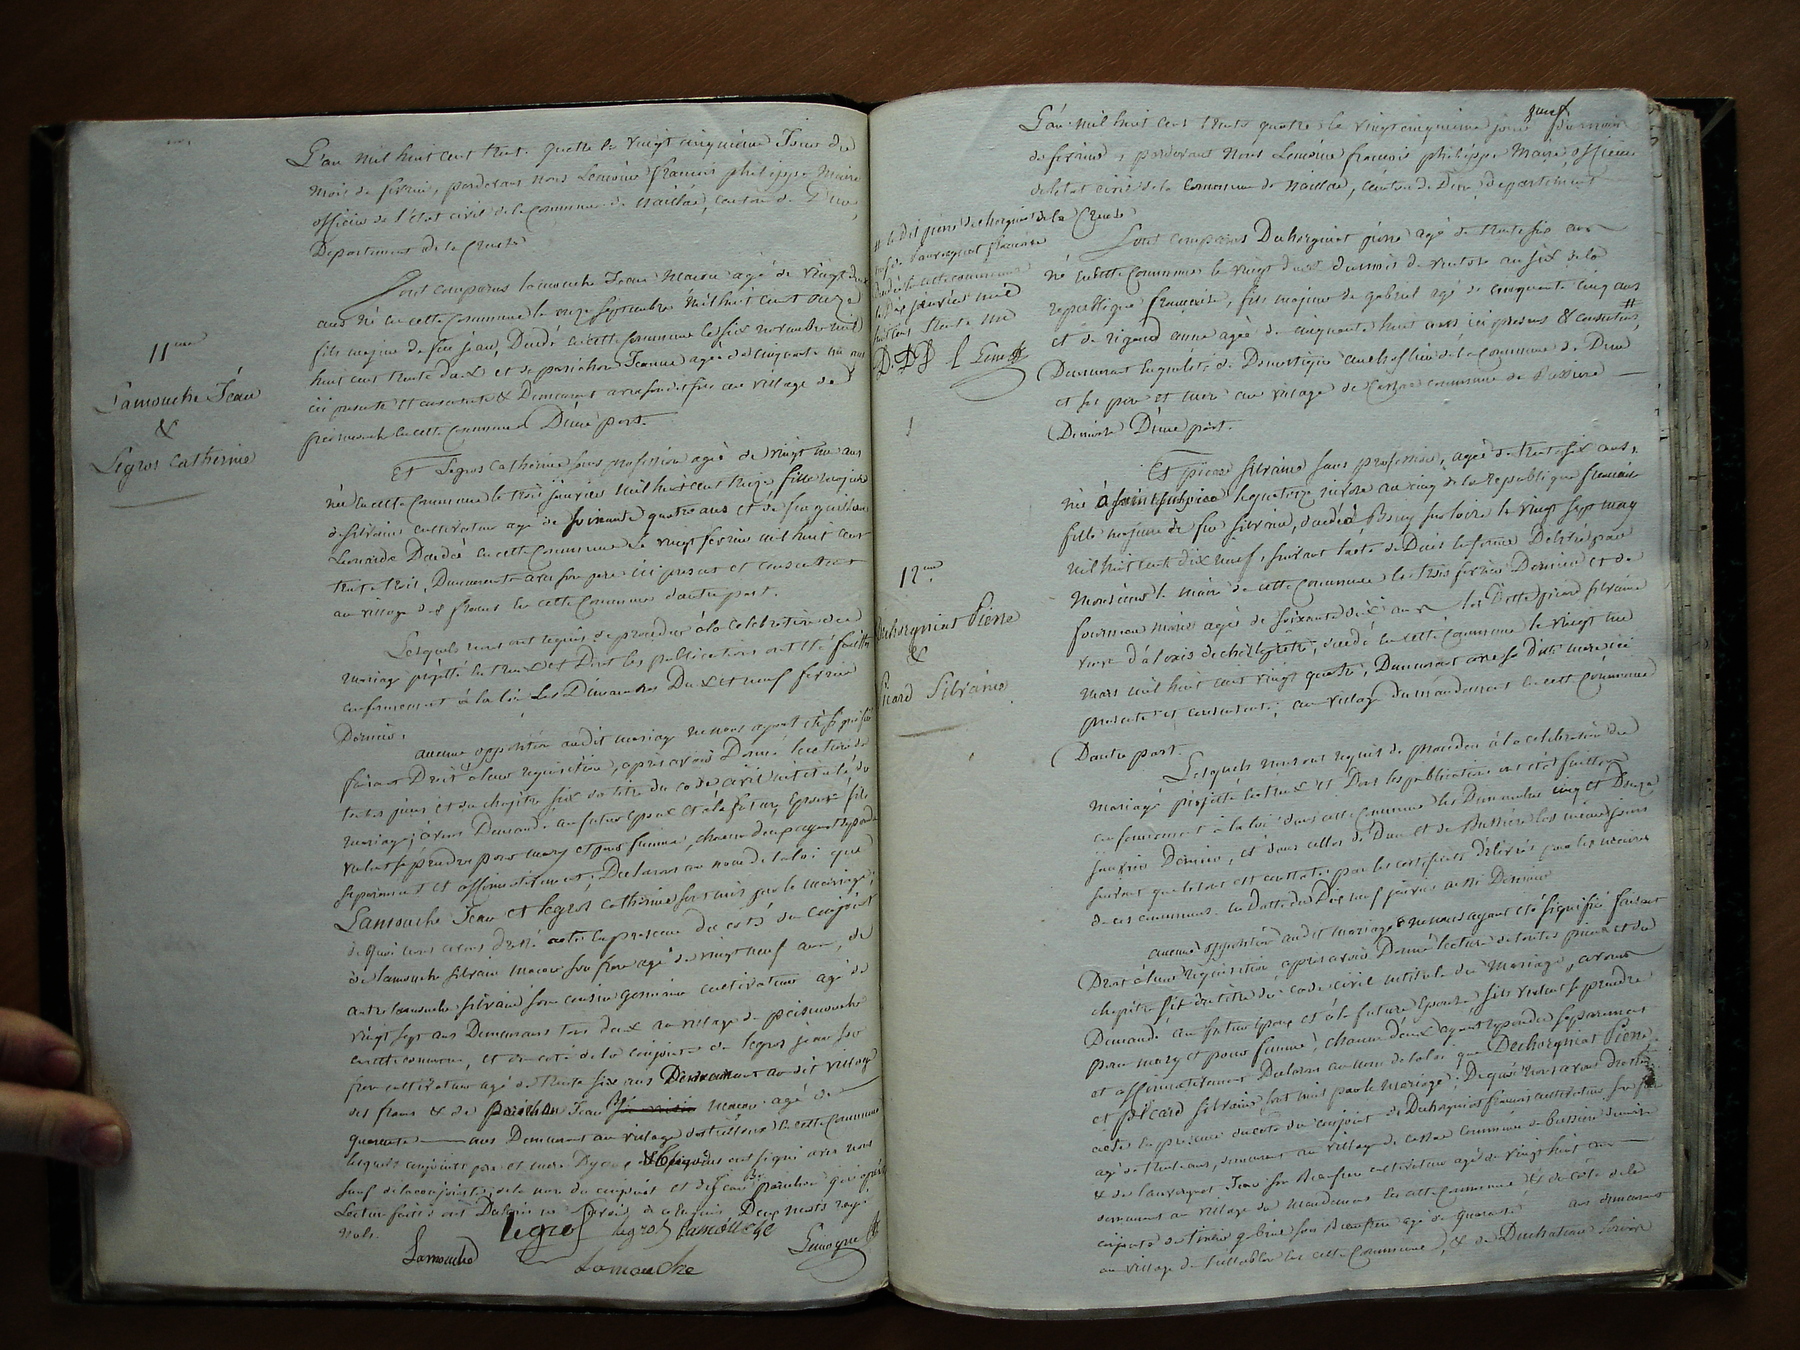 L'an mil huit cent trent quatre le vingt cinquieme Jour du
mois de fevrier, pardevant nous Lemoine francois philippe Maire
officier de l'état civil de la Commune de Naillac, canton de Dun,
Departement de la Creuse
Sont comparus Lamouche Jean Macon agé de vingt deux
ans né en cette Commune le onze Septembre mil huit cent onze
fils majeur de feu jean, Decedé en cette Commune le six novembre mil
huit cent trente deux et de parichon Jeanne agée de cinquante un ans
ici presente et consentante & Demeurant avec son dit fils au village de
en cette Commune D'une part.
11eme
Lamouche Jean
&
Legros Catherine
Et Legros Catherine sans profession agée de vingt un ans
née en cette Commune le trois janvier mil huit cent treize fille majeure
de silvain cultivateur agé de soixante quatre ans et de feu
Leonarde Decedée en cette Commune le vingt fevrier mil huit cent
trente trois, Demeurante avec son pere ici present et consentant
au village des fraux en cette Commune d'autre part.
Lesquels nous ont requis de proceder à la celebration du
mariage projetté entre eux et Dont les publications ont été faites
conformement à la loi les Dimanches Dix et neuf fevrier
Dernier.
aucune opposition audit mariage ne nous ayant été signifiée
faisant Droit à leur requisition, après avoir Donné lecture de
toutes pieces et du chapitre six du titre du code civil intitulé du
mariage; avons Demandé au futur Epoux et à la future Epouse s'ils
veulent se prendre pour mary et pour femme, chacun d'eux ayant repondu
separement et affirmativement; Declarons au nom de la loi que
Lamouche Jean et Legros Catherine sont unis par le mariage;
de quoi nous avons dressé acte en presence du coté du conjoint
de Lamouche silvain macon son frere agé de vingt neuf ans, de
autre Lamouche silvain son cousin germain cultivateur agé de
vingt sept ans Demeurans tous deux au village de
en cette commune, et du coté de la conjointe de Legros jean son
frere cultivateur agé de trente six ans Demeurant au dit village
des fraux & de parichon Jean macon agé de
quarante ans Demeurant au village en cette Commune
lesquels conjoints pere et mere ont signé avec nous
sauf de la conjointe, de la mere du conjoint et dudit parichon qui après
Lecture faite ont Declaré ne savoir Deux mots rayés
nuls.
Legros Legros Lamouche
Lamouche Lamouche Lemoyne
L'an mil huit cent trente quatre le vingt cinquieme jour du mois
de fevrier, pardevant Nous Lemoine francois philippe Maire officier
de l'etat civil de la Commune de Naillac, canton de Dun departement
de la Creuse
# le dit pierre Dechorgniat
veuf de Lauvergnat francoise
decedée en cette commune
le Dix janvier mil
huit cent trente un
D. P. L Lem
Sont comparus Dechorgniat pierre agé de trente six ans
né en cette Commune le vingt du mois de ventose an six de la
republique francaise, fils majeur de gabriel agé de cinquante cinq ans
et de rigaud anne agée de cinquante huit ans ici presens & consentans, #
Demeurant en qualité de Domestique au chef lieu de la Commune de Dun
et ses pere et mere au village de commune de Bussiere
Dunoise D'une part.
12eme
Dechorgniat Pierre
&
Picard Silvaine
Et picard silvaine sans profession, agée de trente six ans,
née à saint sulpice le quatorze nivose an cinq de la republique francaise
fille majeure de feu silvain, decedé à Bouy sur loire le vingt sept may
mil huit cent dix neuf, suivant l'acte de Deces en forme Delivré par
Monsieur le maire de cette commune le trois fevrier Dernier et de
fourneau marie agée de soixante dix ans la Ditte picard silvaine
veuve d'alexis decedé en cette Commune le vingt un
mars mil huit cent vingt quatre; Demeurant avec sa ditte mere ici
presente et consentante; au village du mandement en cette Commune
D'autre part.
Lesquels nous ont requis de proceder à la celebration du
Mariage projetté entre eux et Dont les publications ont été faittes
conformement à la loi dans cette Commune les Dimanches cinq et Douze
janvier Dernier, et dans celles de Dun et de Bussiere les mêmes jours
suivant que le tout est constaté par les certificats delivrés par les maires
de ces communes en Datte du Dix neuf janvier aussi Dernier
aucune opposition audit mariage ne nous ayant été signifiée faisant
Droit à leur requisition après avoir Donné lecture de toutes pieces et du
chapitre six du titre du code civil intitulé du Mariage, avons
Demandé au futur Epoux et à la future Epouse, s'ils veulent se prendre
pour mary et pour femme, chacun d'eux ayant repondu separement
et affirmativement Declarons au nom de la loi que Dechorgniat Pierre
et picard silvaine sont unis par le Mariage; De quoi nous avons dressé
acte en presence du coté du conjoint de Dechorgniat francois cultivateur son frere
agé de trente ans, demeurant au village de Commune de bussiere dunoise
& de Lauvergnat Jean son Beaufrere cultivateur agé de vingt huit ans
demeurant au village du Mandement en cette Commune & du coté de la
conjointe gabriel son Beaufrere agé de quarante ans demeurant
au village de en cette Commune, & de Duchateau